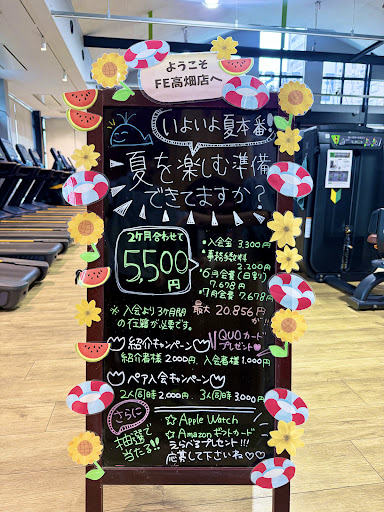 ようこそ
FE高畑店へ
いよいよ夏本番!
夏を楽しむ準備
できてますか?
2ヶ月合わせて
5,500円
・入会金 3,300円
・事務手数料
2,200円
・6月会費(日割り)
7,678円
・7月会費 7,678円
最大 20,856円
が!!
※入会より3ヶ月間
の在籍が必要です。
QUOカード
プレゼント
紹介キャンペーン
紹介者様 2,000円、入会者様 1,000円
ペア入会キャンペーン
2人同時 2,000円、3人同時 3,000円
さらに
抽選で
当たる!!
☆ Apple Watch
☆ Amazonギフトカード
えらべるプレゼント!!!
応募して下さいね♡♡